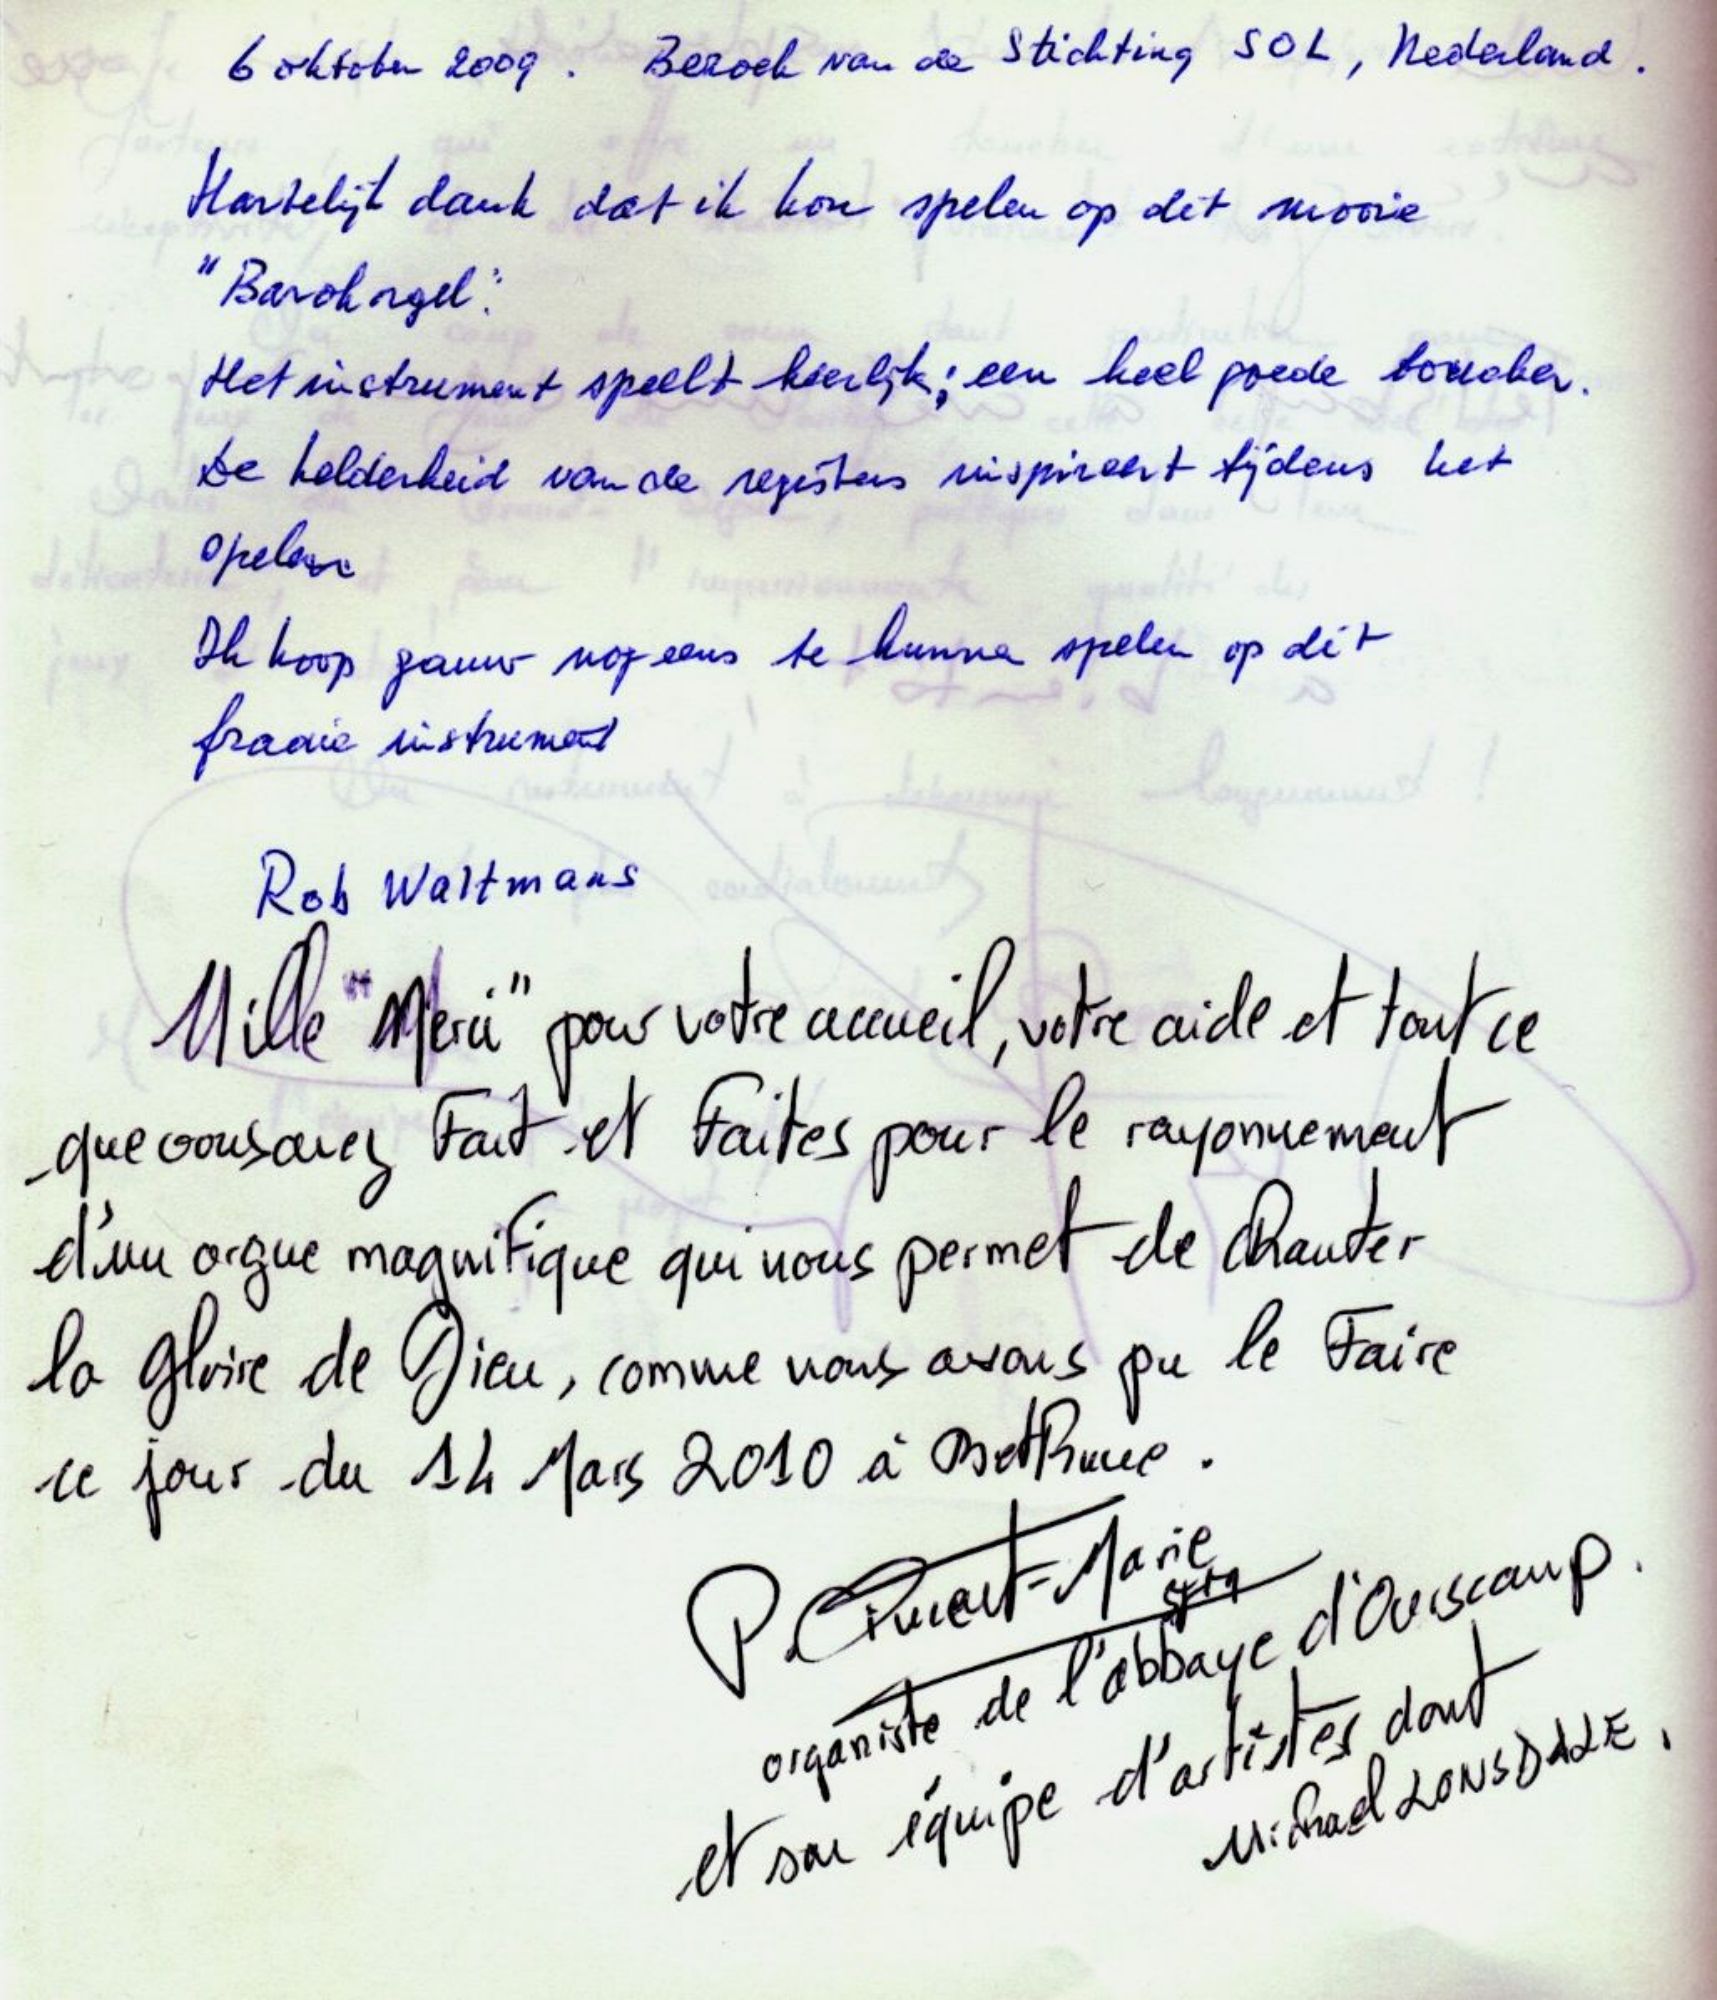 6 oktober 2009. Bezoek van de Stichting SOL, Nederland.
Hartelijk dank dat ik kon spelen op dit mooie
"Barokorgel".
Het instrument speelt heerlijk; een heel goede toucher.
De helderheid van de registers inspireert tijdens het
spelen
Ik hoop gauw nog eens te kunnen spelen op dit
fraaie instrument
Rob Waltmans
Mille "Merci" pour votre accueil, votre aide et tout ce
que vous avez Fait et Faites pour le rayonnement
d'un orgue magnifique qui nous permet de chanter
la gloire de Dieu, comme nous avons pu le Faire
ce jour du 14 Mars 2010 à Bethune.
P. -Marie
organiste de l'abbaye d'Ourscamp.
et son équipe d'artistes dont
Michael LONSDALE.